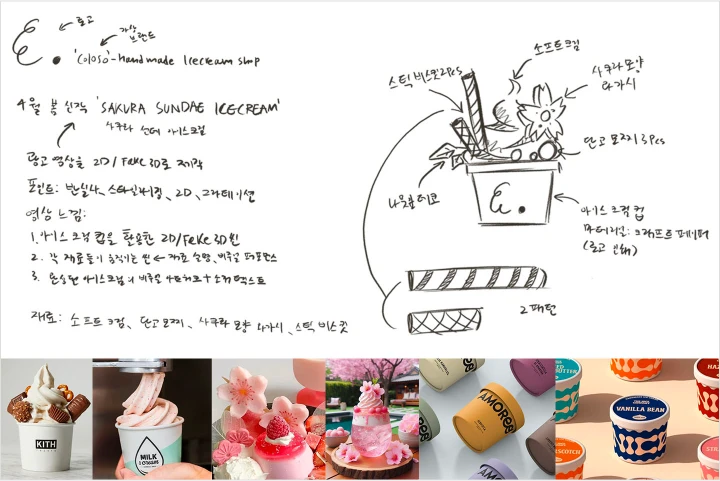 로고
가상
브랜드
'coloso'-handmade Icecream shop
4월 봄 신작 'SAKURA SUNDAE ICECREAM'
사쿠라 선데 아이스크림
광고 영상을 2D/Fake 3D로 제작
포인트: 반실사, 스타일라이징, 2D, 그라데이션
영상 느낌:
1. 아이스크림 컵을 활용한 2D/Fake 3D씬
2. 각 재료들이 움직이는 씬 ← 재료 설명, 비주얼 퍼포먼스
3. 완성된 아이스크림의 비주얼 + 소개 텍스트
재료: 소프트 크림, 단고 모찌, 사쿠라 모양 화가시, 스틱 비스킷
소프트크림
스틱비스킷 2pcs
사쿠라 모양
화가시
단고 모찌 3pcs
나뭇잎 데코
아이스크림 컵
머티리얼: 크래프트 페이퍼
(로고 인쇄)
2패턴
KITH
MILK
AMORE
VANILLA BEAN